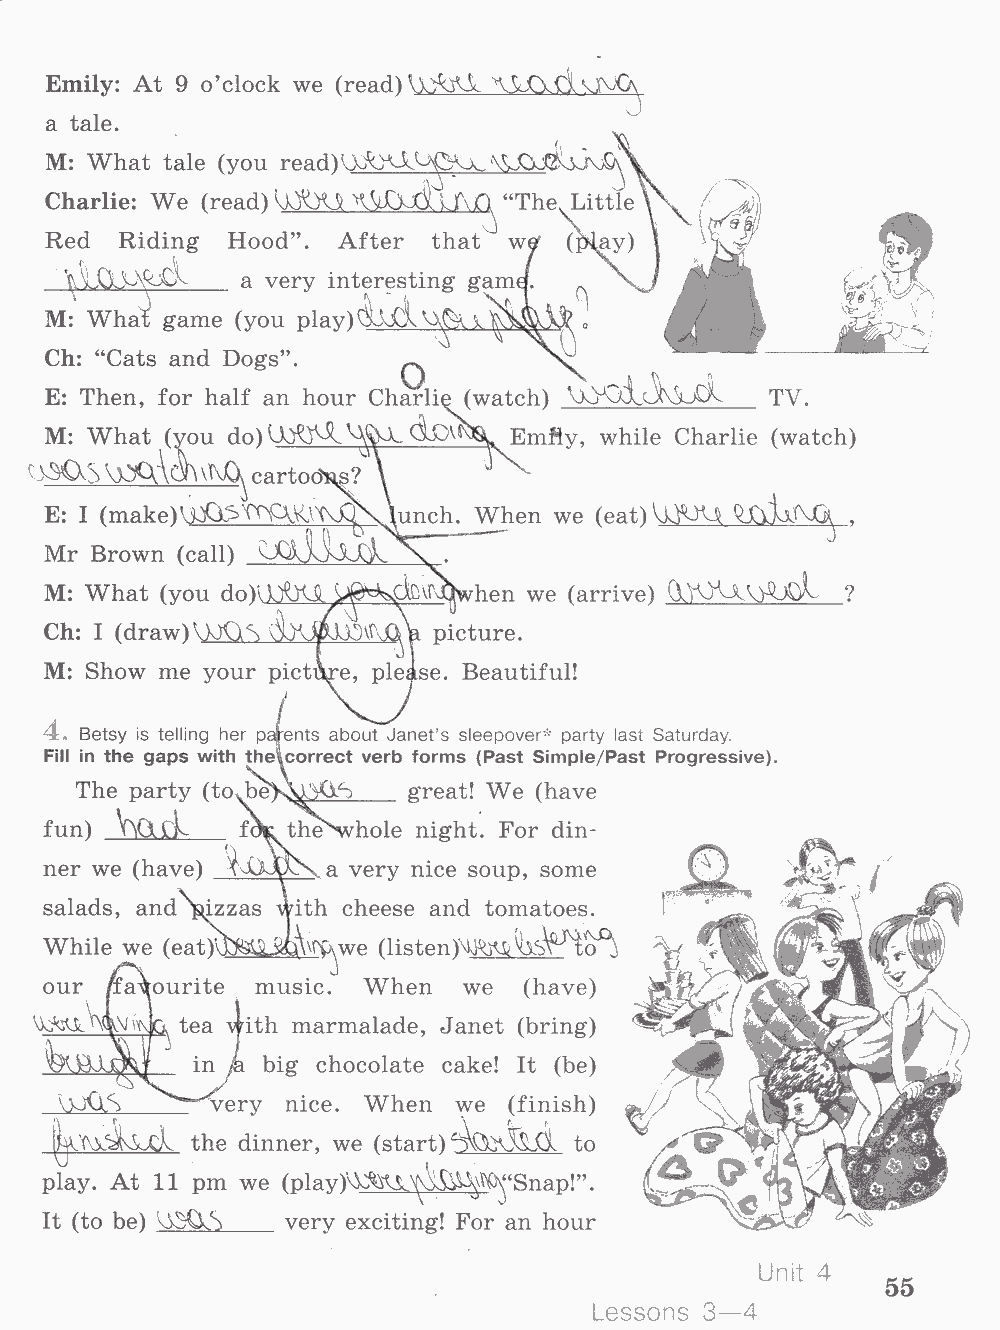 Emily: At 9 o'clock we (read) were reading
a tale.
M: What tale (you read) were you reading
Charlie: We (read) were reading "The Little
Red Riding Hood". After that we (play)
played a very interesting game.
M: What game (you play) did you play?
Ch: "Cats and Dogs".
E: Then, for half an hour Charlie (watch) watched TV.
M: What (you do) were you doing, Emily, while Charlie (watch)
was watching cartoons?
E: I (make) was making lunch. When we (eat) were eating,
Mr Brown (call) called.
M: What (you do) were you doing when we (arrive) arreved ?
Ch: I (draw) was drawing a picture.
M: Show me your picture, please. Beautiful!
4. Betsy is telling her parents about Janet's sleepover* party last Saturday.
Fill in the gaps with the correct verb forms (Past Simple/Past Progressive).
The party (to be) was great! We (have
fun) had for the whole night. For din-
ner we (have) had a very nice soup, some
salads, and pizzas with cheese and tomatoes.
While we (eat) were eating we (listen) were listening to
our favourite music. When we (have)
were having tea with marmalade, Janet (bring)
brought in a big chocolate cake! It (be)
was very nice. When we (finish)
finished the dinner, we (start) started to
play. At 11 pm we (play) were playing "Snap!".
It (to be) was very exciting! For an hour
Unit 4
55
Lessons 3—4